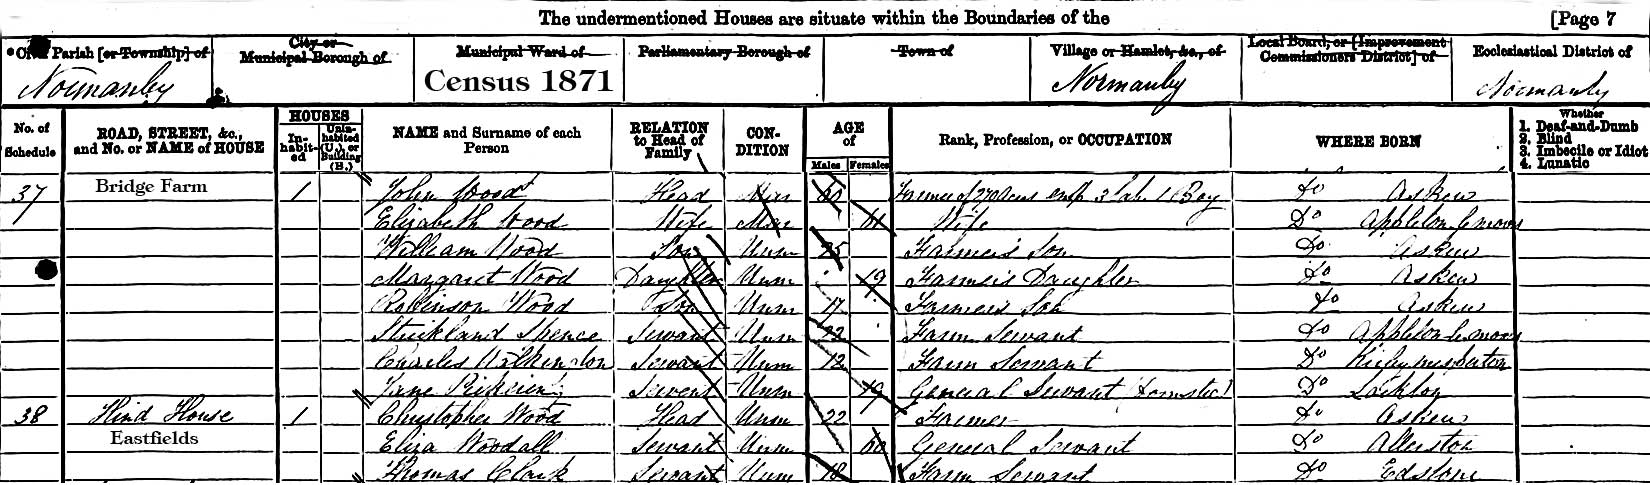 The undermentioned Houses are situate within the Boundaries of the [Page 7
Parish [or Township] of City or Municipal Borough of Municipal Ward of Parliamentary Borough of Town of Village or Hamlet, &c., of Local Board, or [Improvement Commissioners District] of Ecclesiastical District of
Normanby Census 1871 Normanby Normanby
No. of Schedule ROAD, STREET, &c., and No. or NAME of HOUSE HOUSES In-habit-ed Unin-habited (U.), or Building (B.) NAME and Surname of each Person RELATION to Head of Family CON-DITION AGE of Males Females Rank, Profession, or OCCUPATION WHERE BORN Whether
1. Deaf-and-Dumb
2. Blind
3. Imbecile or Idiot
4. Lunatic
37 Bridge Farm 1 John Wood Head Mar Farmer of 270 acres emp 3 lab 1 Boy Do Askew
Elizabeth Wood Wife Mar 61 Wife Do Appleton
William Wood Son Unm 25 Farmer's Son Do Askew
Margaret Wood Daughter Unm 19 Farmer's Daughter Do Askew
Robinson Wood Son Unm 17 Farmer's Son Do Askew
Strickland Spence Servant Unm 22 Farm Servant Do Appleton
Charles Servant Unm 12 Farm Servant Do
Jane Servant Unm 19 General Servant Do Lockton
38 Hind House 1 Christopher Wood Head Unm 22 Farmer Do Askew
Eastfields Eliza Woodall Servant Unm 60 General Servant Do Allerston
Thomas Clark Servant Unm 18 Farm Servant Do Edstone